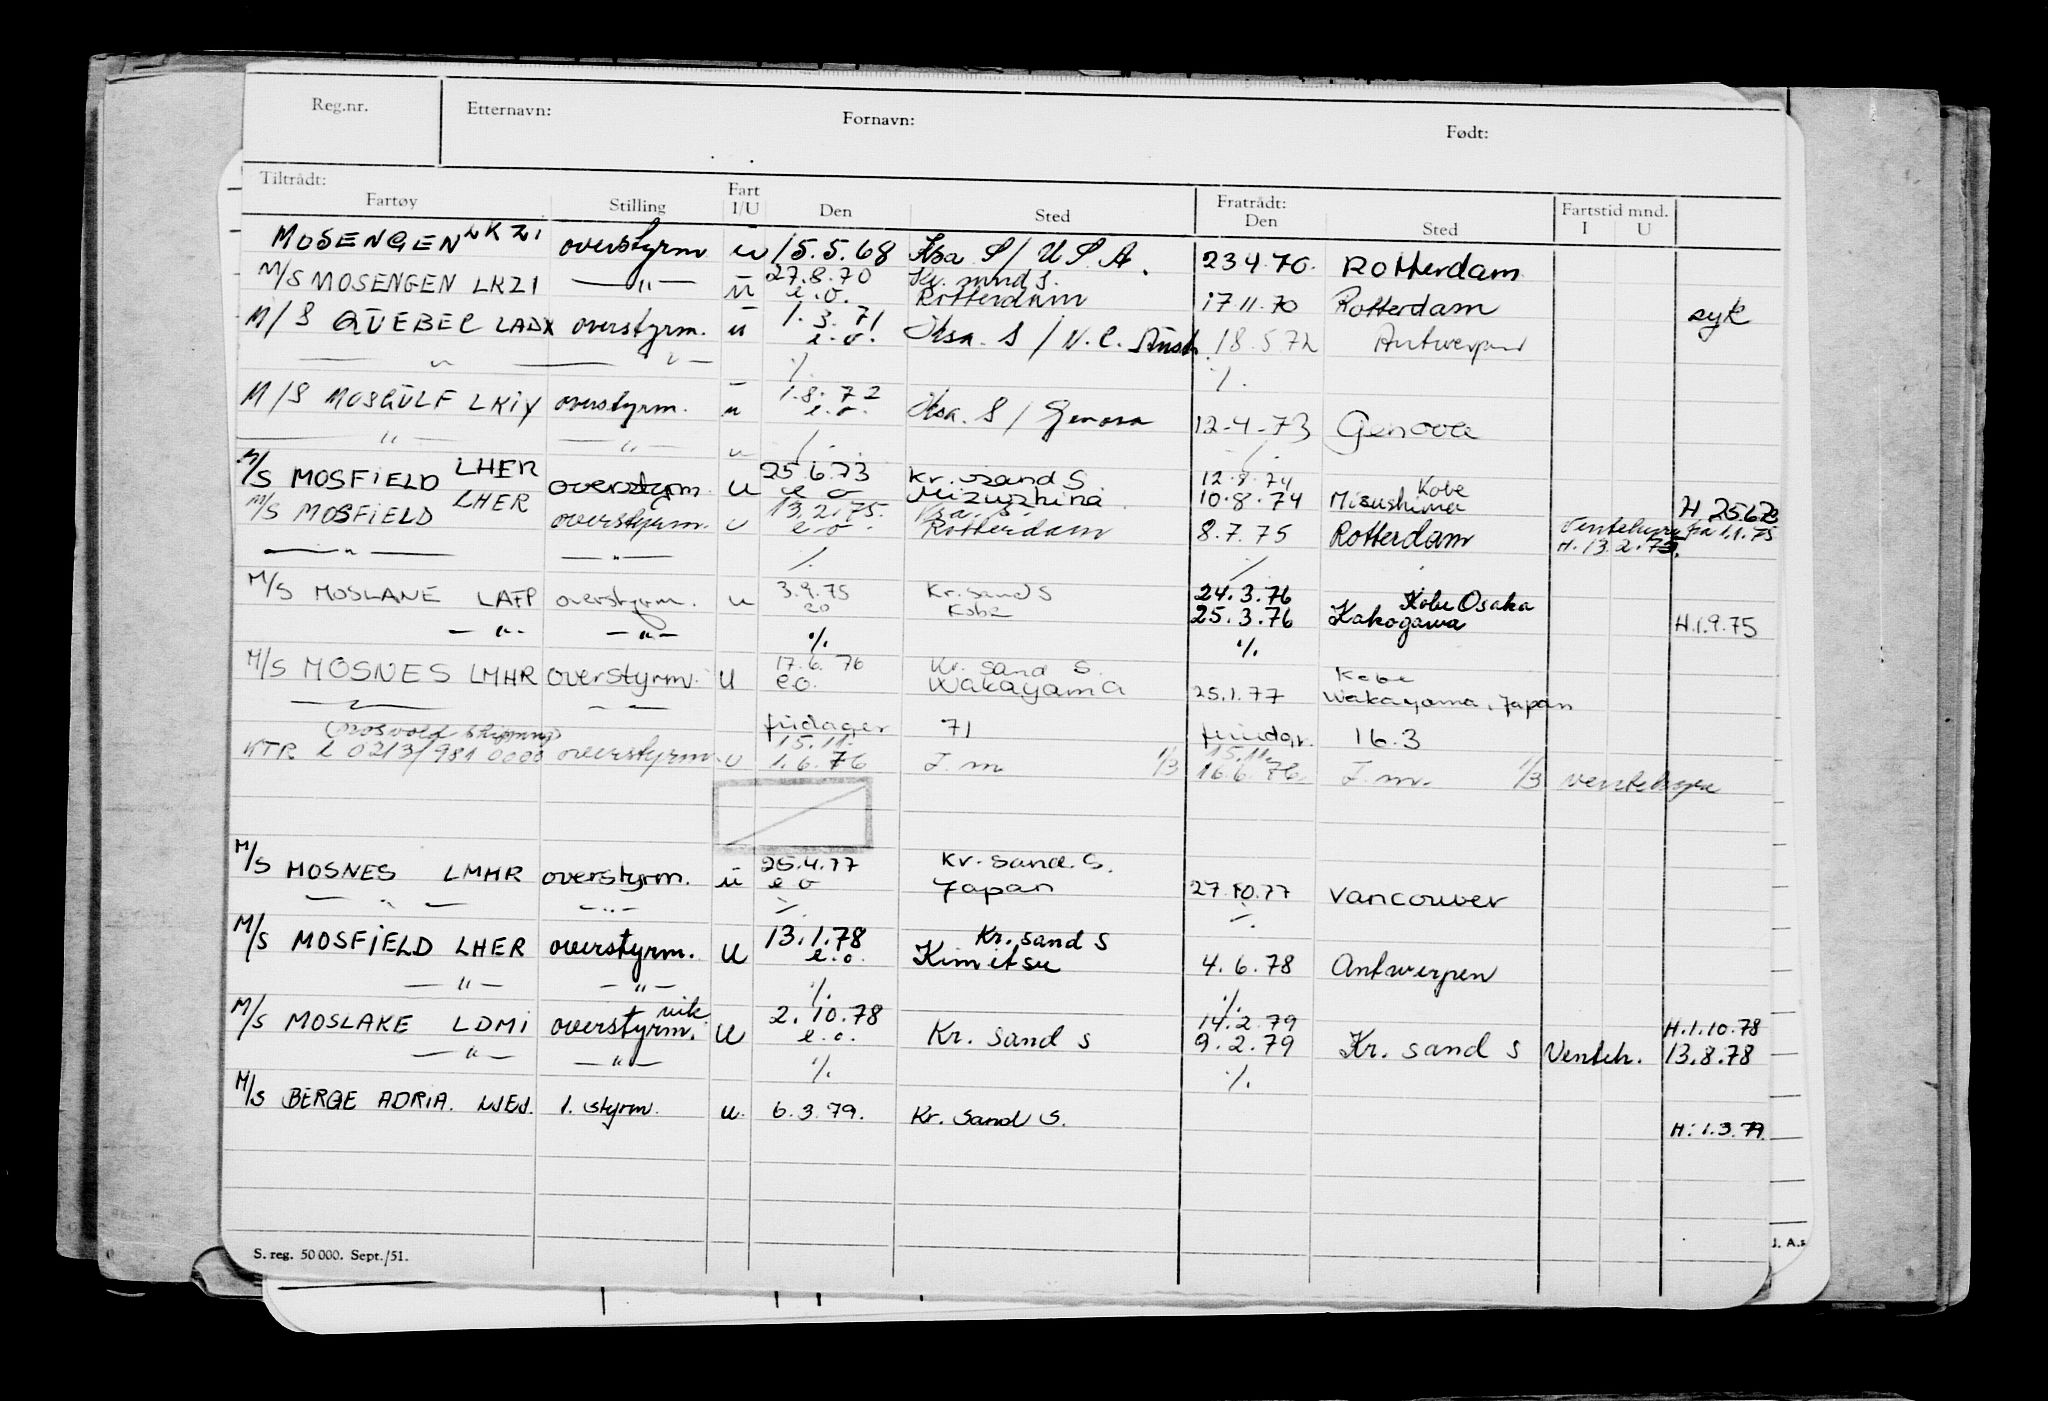 Reg.nr. Etternavn: Fornavn: Født:
Tiltrådt: Fratrådt:
Fartøy Stilling Fart I/U Den Sted Den Sted Fartstid mnd. I U
MOSENGEN LKZI overstyrm u 15.5.68 Ksa S/ U S A. 23 4.70. Rotterdam
M/S MOSENGEN LKZI — " — u 27.8.70 e.o. Kr. sand S. Rotterdam 17.11.70 Rotterdam syk
M/S QUEBEC LADX overstyrm. u 1.3.71 e.o. Ksa. S / N.C. 18.5.72 Antwerpen
— " — — " — ./. ./.
M/S MOSGULF LKIY overstyrm. u 1.8.72 e.o. Ksa. S / Genova 12.4.73 Genova
— " — — " — u ./. ./.
M/S MOSFIELD LHER overstyrm. u 25.6.73 e o Kr. sand S Mizushima 12.8.74 10.8.74 Kobe Misushima H 25.6.73
M/S MOSFIELD LHER overstyrm. u 13.2.75. e.o. Ksa. S. Rotterdam 8.7.75 Rotterdam Ventehyre fra 1.1.75 H. 13.2.75.
— " — — " — ./. ./.
M/S MOSLANE LATP overstyrm. u 3.9.75 eo Kr. sand S Kobe 24.3.76 25.3.76 Kobe Osaka Kakogawa H.1.9.75
— " — — " — ./. ./.
M/S MOSNES LMHR overstyrm. U 17.6.76 e o. Kr. sand S. Wakayama 25.1.77 Kobe Wakayama, Japan
— " — — " —
fridager 71 fridgr. 16.3
(Mosvold Shipping) 15.11. 15.11.
KTR 20213/981 0000 overstyrm. u 1.6.76 I.m 1/3 16.6.76. I.m. 1/3
M/S MOSNES LMHR overstyrm. u 25.4.77 e o Kr. sand. S. Japan 27.10.77 Vancouver
— " — — " — ./. ./.
M/S MOSFIELD LHER overstyrm. U 13.1.78 e.o. Kr. sand S Kimitsu 4.6.78 Antwerpen
— " — — " — ./. ./.
M/S MOSLAKE LDMI overstyrm. vik U 2.10.78 e.o. Kr. sand S 14.2.79 9.2.79 Kr. sand S Venteh. H.1.10.78 13.8.78
— " — — " — ./. ./.
M/S BERGE ADRIA. 1. styrm. u. 6.3.79. Kr. sand S. H: 1.3.79.
S. reg. 50 000. Sept./51.
J. A.s